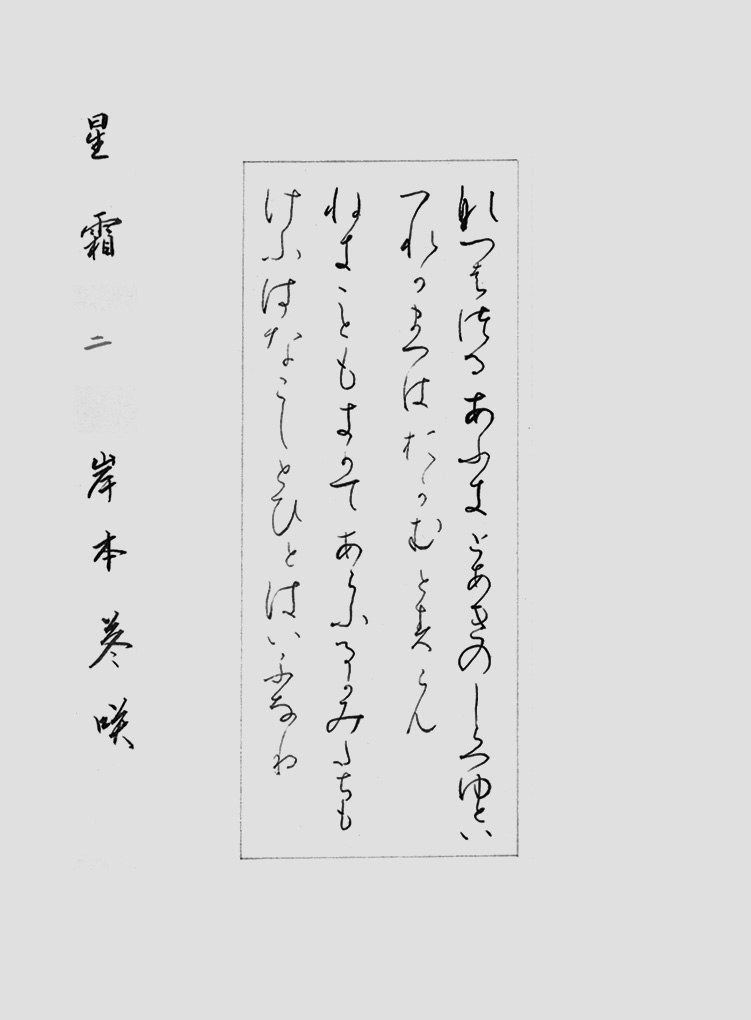 なつはつるあふきとあきのしらつゆとい
つれかまつはおかむとすらん
ねきこともきかてあらふるかみたちも
けふはなこしとひとはいふなり
星霜二 岸本 咲